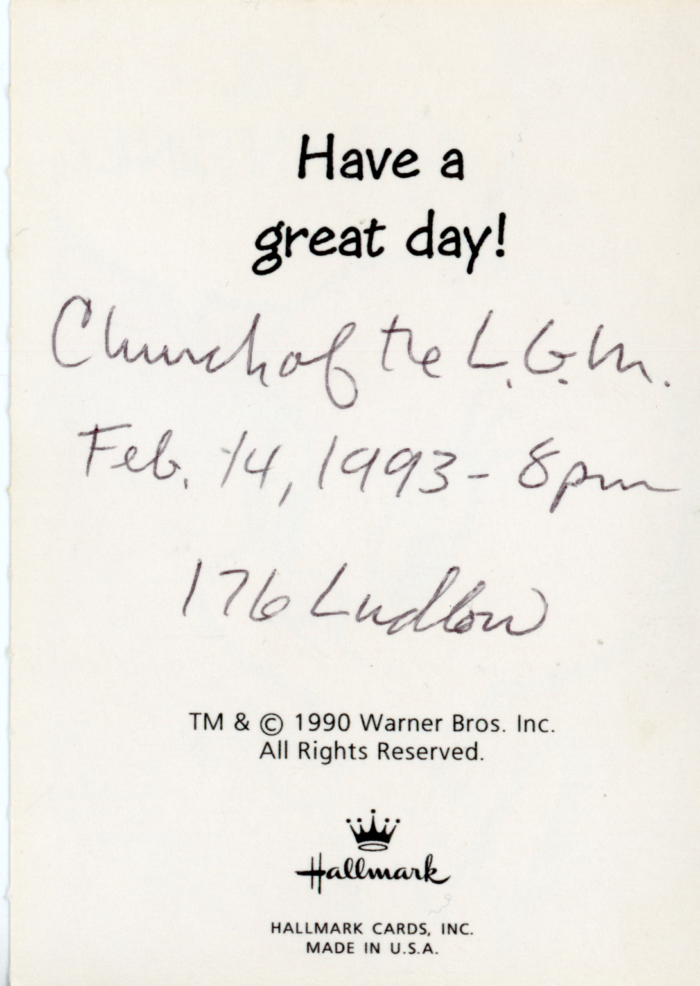 Have a
great day!
Church of the L.G.M.
Feb. 14, 1993 - 8pm
176 Ludlow
TM & © 1990 Warner Bros. Inc.
All Rights Reserved.
Hallmark
HALLMARK CARDS, INC.
MADE IN U.S.A.